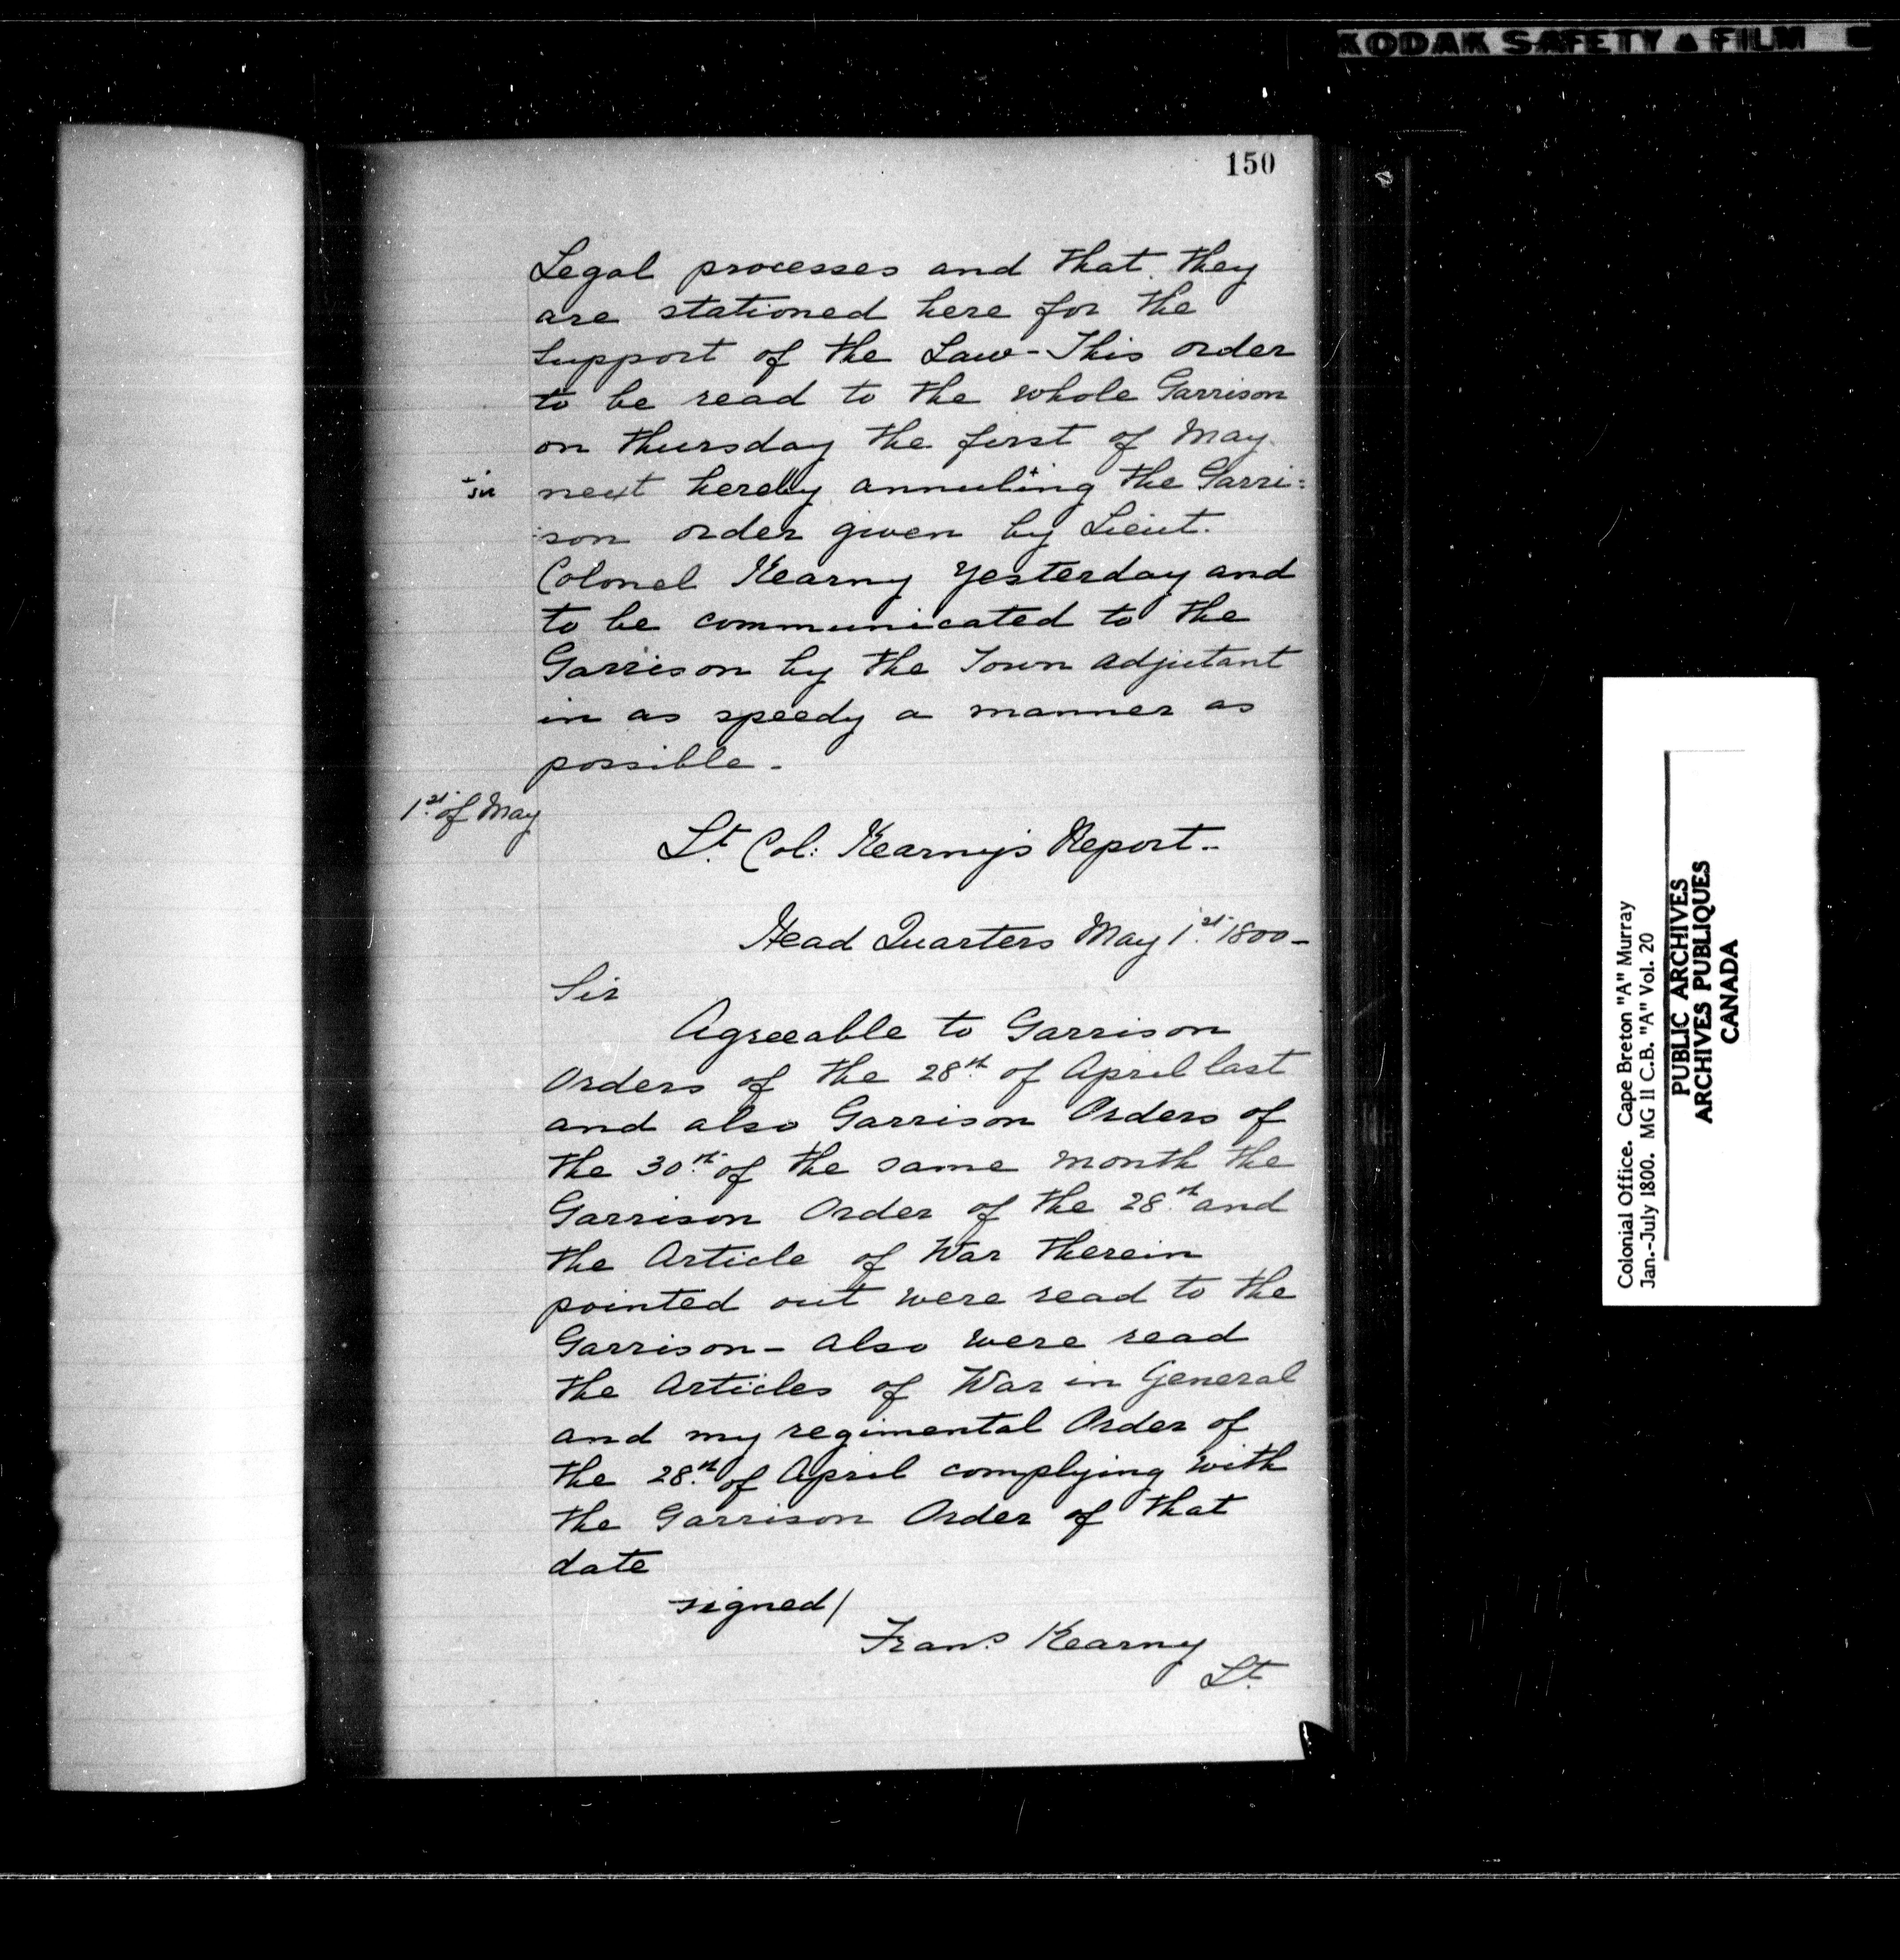 KODAK SAFETY FILM
150
Legal processes and that they
are stationed here for the
support of the Law - This order
to be read to the whole Garrison
on thursday the first of May
+in
next hereby annuling the Garri=
son order given by Lieut.
Colonel Kearny yesterday and
to be communicated to the
Garrison by the Town adjutant
in as speedy a manner as
possible -
1st. of May
Lt. Col: Kearny's Report..
Head Quarters May 1st. 1800 -
Sir
Agreeable to Garrison
Orders of the 28th. of April last
and also Garrison Orders of
the 30th. of the same month the
Garrison Order of the 28th. and
the Article of War therein
pointed out were read to the
Garrison - also were read
the Articles of War in General
and my regimental Order of
the 28th. of April complying with
the Garrison Order of that
date
signed/
Frans. Kearny
Lt.
Colonial Office. Cape Breton "A" Murray
Jan.-July 1800. MG 11 C.B. "A" Vol. 20
PUBLIC ARCHIVES
ARCHIVES PUBLIQUES
CANADA